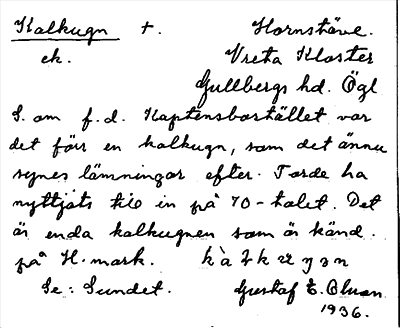 Kalkugn †. Hornstäve.
ek. Vreta Kloster
Gullbergs hd. Ögl
S. om f.d. Kaptensbostället var
det förr en kalkugn, som det ännu
synes lämningar efter. Torde ha
nyttjats till in på 70-talet. Det
är enda kalkugnen som är känd.
på H. mark.
Se: Sundet. Gustaf E. Olsson
1936.